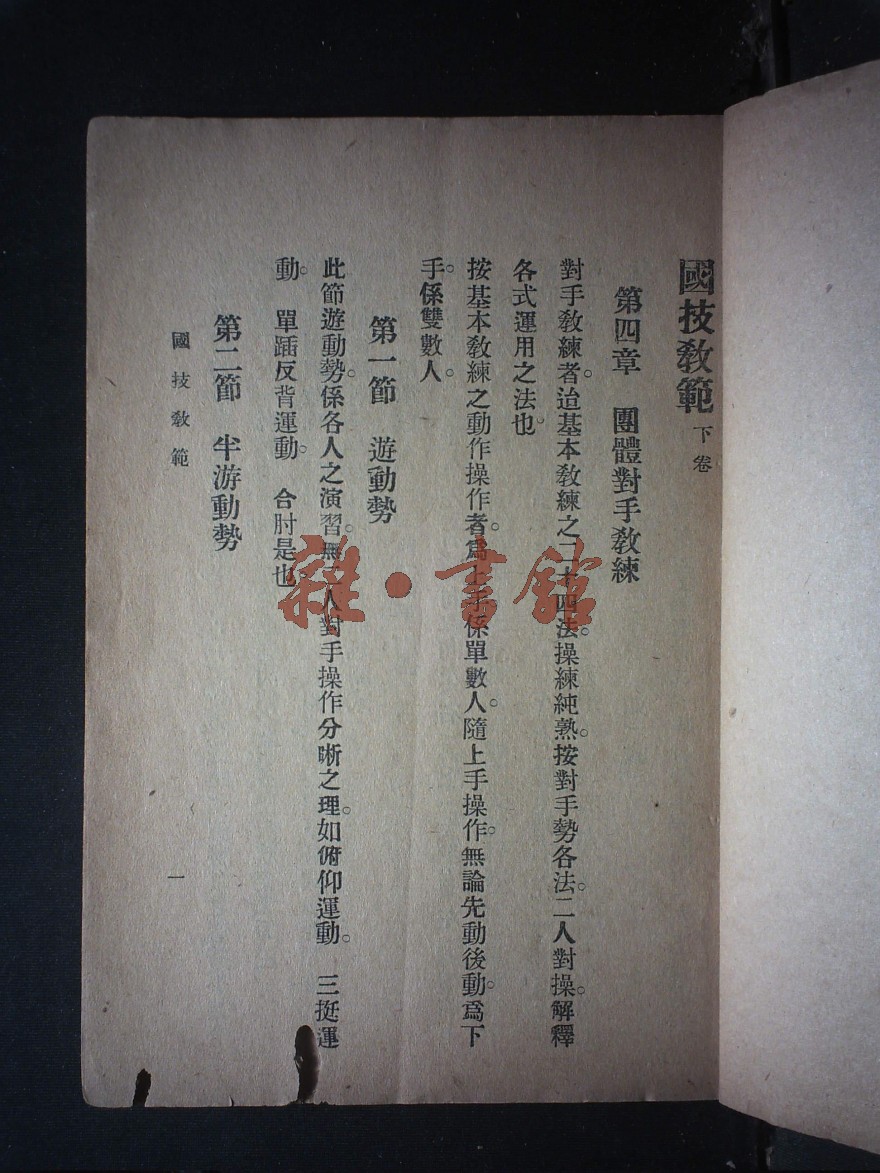 國技教範 下卷
第四章 團體對手教練
對手教練者。迨基本教練之二十四法。操練純熟。按對手勢各法。二人對操。解釋
各式運用之法也。
按基本教練之動作操作者。爲上手係單數人。隨上手操作。無論先動後動。爲下
手。係雙數人。
第一節 遊動勢
此節遊動勢。係各人之演習。無二人對手操作分晰之理。如俯仰運動。 三挺運
動。 單踊反背運動。 合肘是也
第二節 半游動勢
國技教範
一
雜·書館